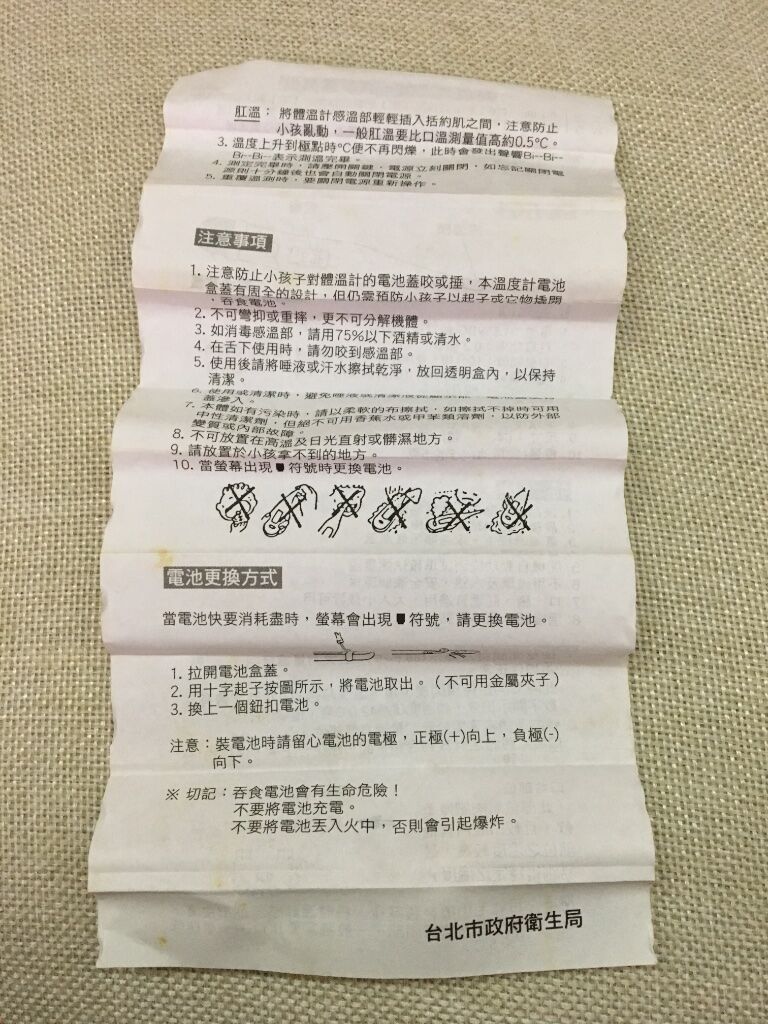 肛溫：將體溫計感溫部輕輕插入括約肌之間，注意防止
小孩亂動，一般肛溫要比口溫測量值高約0.5°C。
3. 溫度上升到極點時°C便不再閃爍，此時會發出聲響Bi--Bi--
Bi--Bi--表示測溫完畢。
4. 測定完畢時，請壓開關鍵，電源立刻關閉，如忘記關閉電
源則十分鐘後也會自動關閉電源。
5. 重覆溫測時，要關閉電源重新操作。
注意事項
1. 注意防止小孩子對體溫計的電池蓋咬或捶，本溫度計電池
盒蓋有周全的設計，但仍需預防小孩子以起子或它物撬開
，吞食電池。
2. 不可彎抑或重摔，更不可分解機體。
3. 如消毒感溫部，請用75%以下酒精或清水。
4. 在舌下使用時，請勿咬到感溫部。
5. 使用後請將唾液或汗水擦拭乾淨，放回透明盒內，以保持
清潔。
6. 使用或清潔時，避免唾液或清潔液從
蓋滲入。
7. 本體如有污染時，請以柔軟的布擦拭，如擦拭不掉時可用
中性清潔劑，但絕不可用香蕉水或甲苯類溶劑，以防外部
變質或內部故障。
8. 不可放置在高溫及日光直射或髒濕地方。
9. 請放置於小孩拿不到的地方。
10. 當螢幕出現 符號時更換電池。
電池更換方式
當電池快要消耗盡時，螢幕會出現 符號，請更換電池。
1. 拉開電池盒蓋。
2. 用十字起子按圖所示，將電池取出。（不可用金屬夾子）
3. 換上一個鈕扣電池。
注意：裝電池時請留心電池的電極，正極(+)向上，負極(-)
向下。
※ 切記：吞食電池會有生命危險！
不要將電池充電。
不要將電池丟入火中，否則會引起爆炸。
台北市政府衛生局